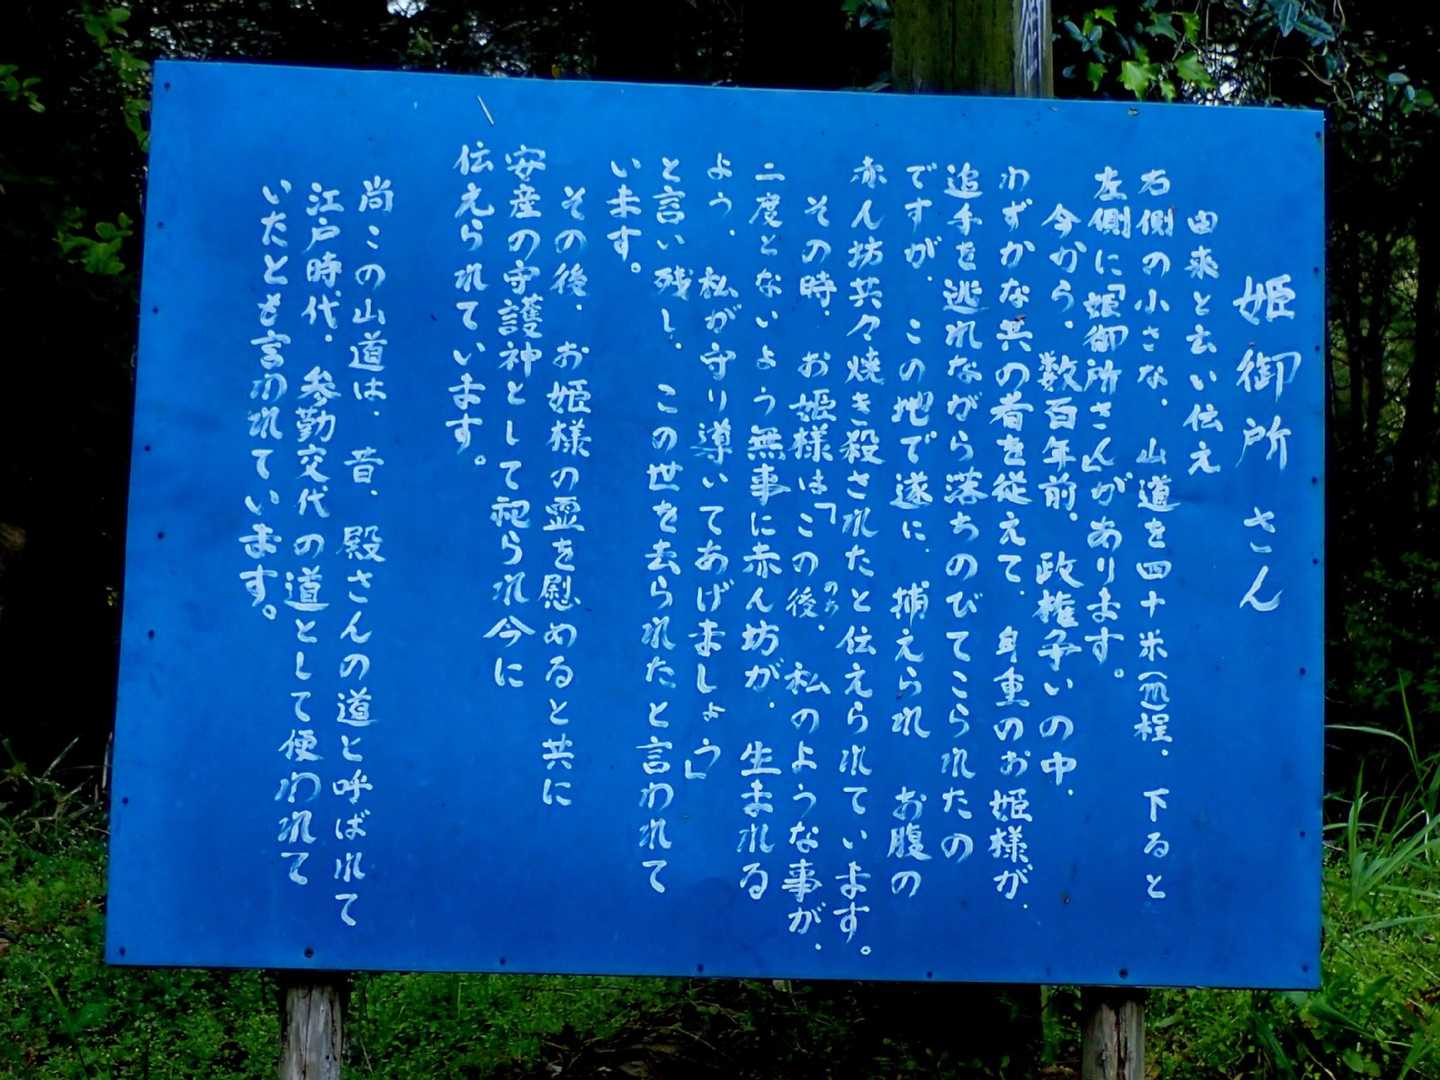 姫御所さん
由来と云い伝え
右側の小さな、山道を四十米(m)程、下ると
左側に「姫御所さん」があります。
今から、数百年前、政権争いの中、
わずかな共の者を従えて、身重のお姫様が、
追手を逃れながら落ちのびてこられたの
ですが、この地で遂に、捕えられ お腹の
赤ん坊共々焼き殺されたと伝えられています。
その時、お姫様は「この後、私のような事が、
のち
二度とないよう無事に赤ん坊が、生まれる
よう、私が守り導いてあげましょう」
と言い残し、この世を去られたと言われて
います。
その後、お姫様の霊を慰めると共に
安産の守護神として祀られ今に
伝えられています。
尚この山道は、昔、殿さんの道と呼ばれて
江戸時代、参勤交代の道として使われて
いたとも言われています。